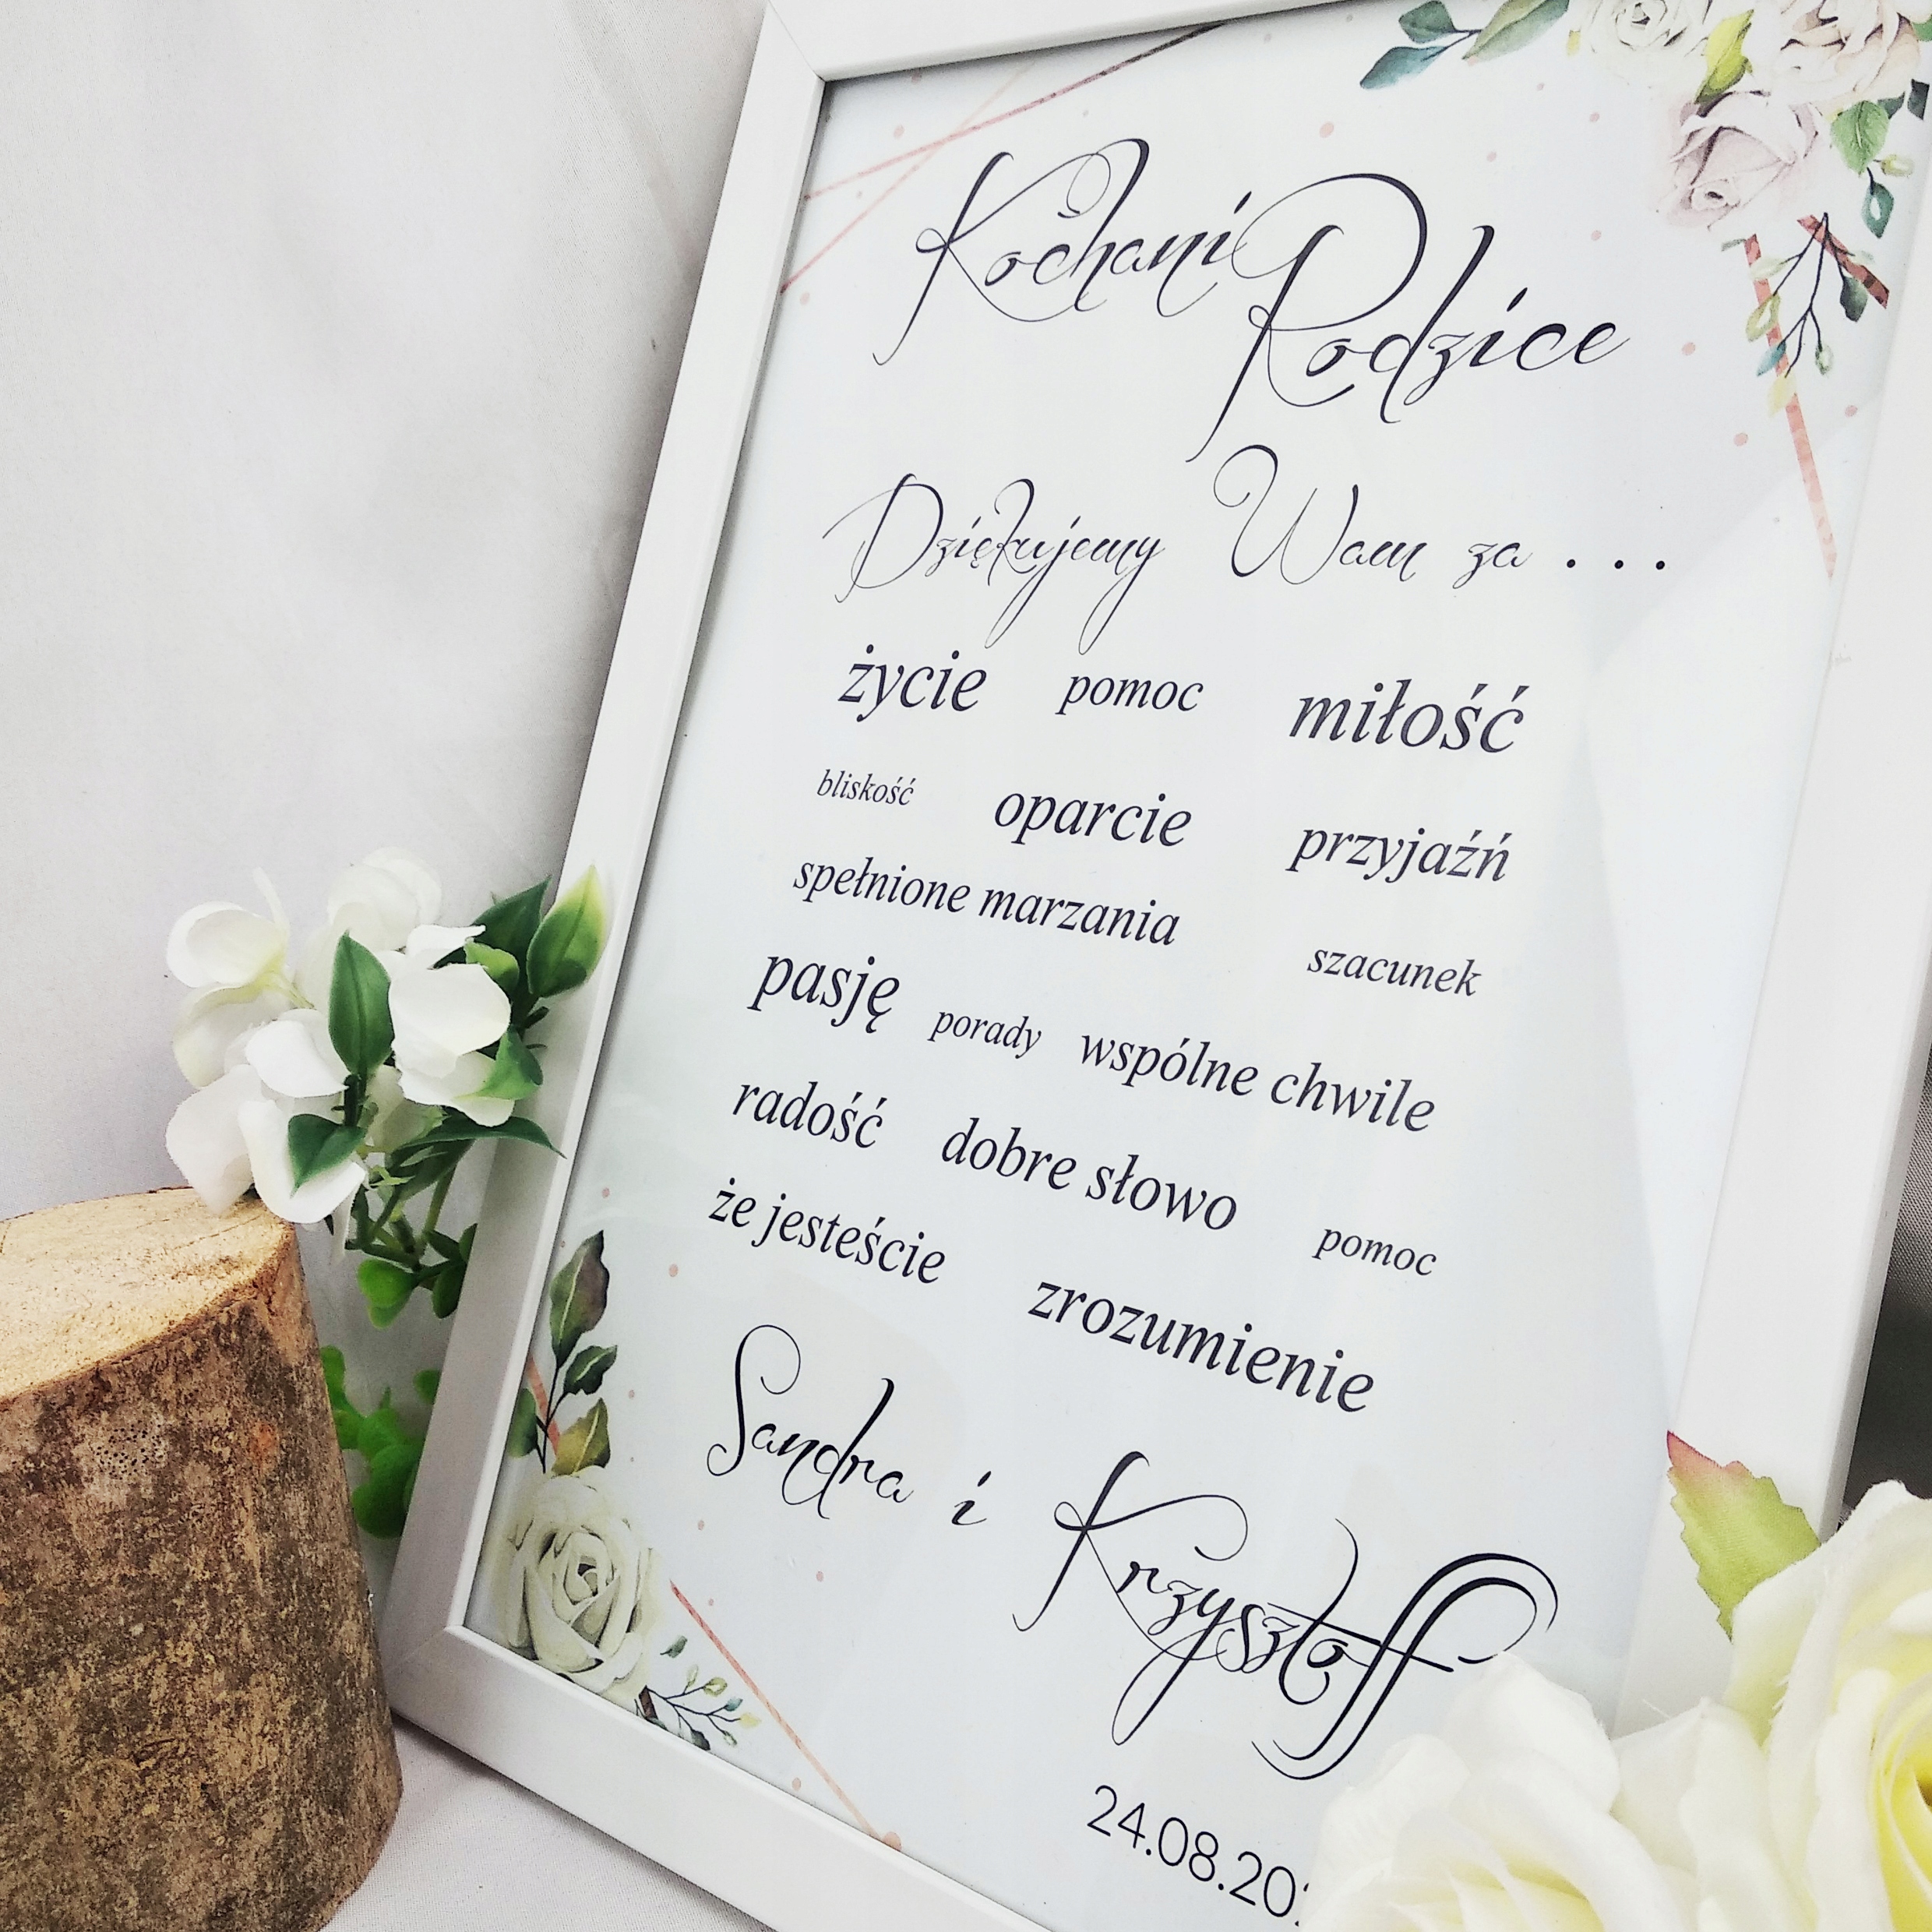 Kochani
Rodzice
Dziękujemy Wam za ...
życie pomoc miłość
bliskość oparcie przyjaźń
spełnione marzania szacunek
pasję porady wspólne chwile
radość dobre słowo pomoc
że jesteście zrozumienie
Sandra i Krzysztoff
24.08.202